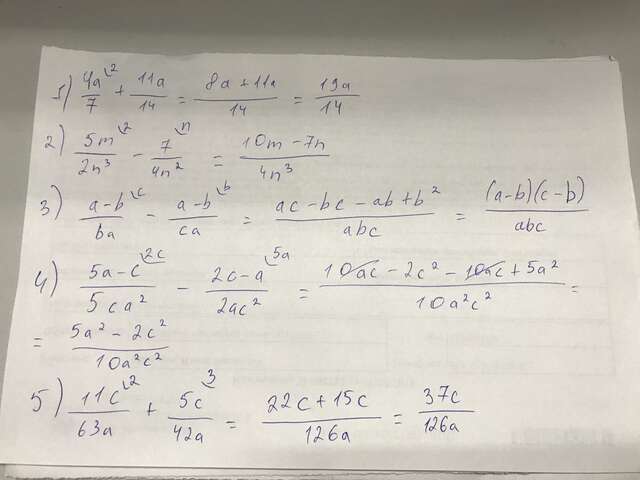 1) 4a/7 ⌞2 + 11a/14 = (8a + 11a)/14 = 19a/14
2) 5m/2n³ ⌞2 - 7/4n² ⌞n = (10m - 7n)/4n³
3) (a-b)/ba ⌞c - (a-b)/ca ⌞b = (ac - bc - ab + b²)/abc = (a-b)(c-b)/abc
4) (5a-c)/5ca² ⌞2c - (2c-a)/2ac² ⌞5a = (10ac - 2c² - 10ac + 5a²)/10a²c² =
= (5a² - 2c²)/10a²c²
5) 11c/63a ⌞2 + 5c/42a ⌞3 = (22c + 15c)/126a = 37c/126a